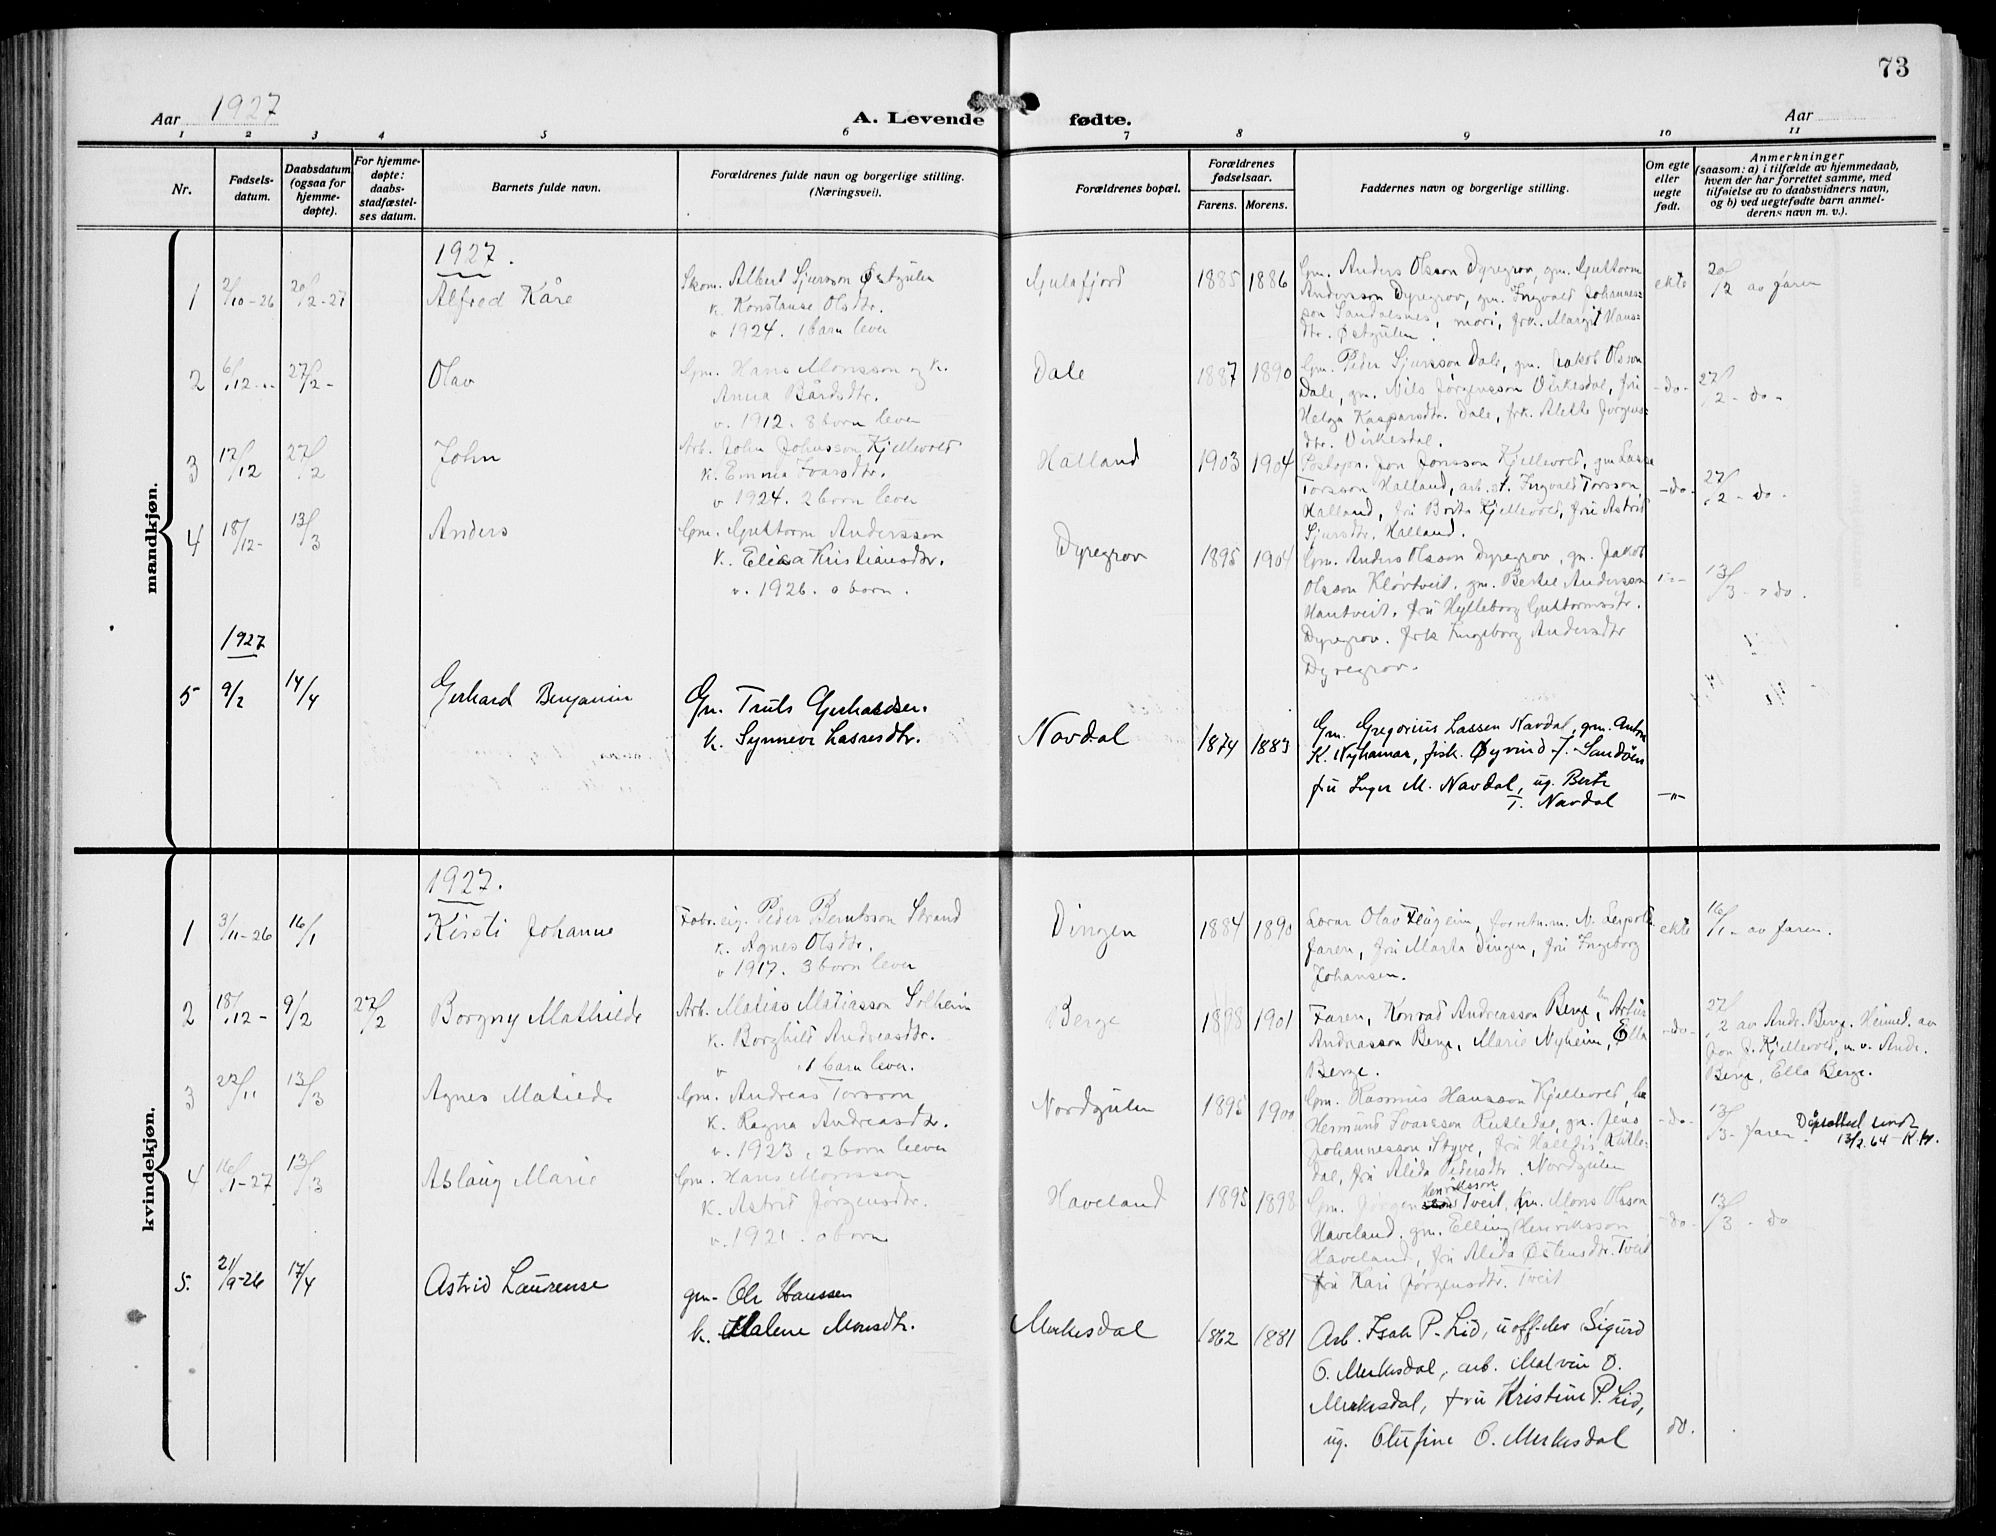 73
Aar 1927
A. Levende fødte.
Aar
1 2 3 4 5 6 7 8 9 10 11
Nr.
Fødsels-
datum.
Daabsdatum
(ogsaa for
hjemme-
døpte).
For hjemme-
døpte:
daabs-
stadfæstel-
ses datum.
Barnets fulde navn.
Forældrenes fulde navn og borgerlige stilling.
(Næringsvei).
Forældrenes bopæl.
Forældrenes
fødselsaar.
Farens. Morens.
Faddernes navn og borgerlige stilling.
Om egte
eller
uegte
født.
Anmerkninger
(saasom: a) i tilfælde av hjemmedaab,
hvem der har forrettet samme, med
tilføielse av to daabsvidners navn,
og b) ved uegtefødte barn anmel-
derens navn m. v.).
mandkjøn.
1927.
1 2/10-26 20/2-27 Alfred Kåre
Skom. Albert Sjursson Østgulen
k. Konstanse Olsdtr.
v 1924. 1 barn lever
Gulafjord 1885 1886
Gm. Anders Olsson Dyregrov, gm. Guttorm
Andersson Dyregrov, gm. Ingvald Johannes-
son Sandalsnes, mori, frk. Margit Hans-
dtr. Østgulen.
ekte 20/2 av faren
2 6/12 27/2 - Olav
Gm. Hans Monsson og k.
Anna Bårdsdtr.
v. 1912. 8 born lever
Dale 1887 1890
Gm. Peder Sjursson Dale, gm. Jakob Olsson
Dale, gm. Nils Jørgensson Virkesdal, fru
Helga Kasparsdtr. Dale, frk. Alette Jørgens-
dtr. Virkesdal.
- do - 27/2 - do -
3 12/12 27/2 John
Arb. John Johnsson Kjellevold
k. Emma Ivarsdtr.
v 1924. 2 born lever
Halland 1903 1904
Postopn. Jon Jonsson Kjellevold, gm Lasse
Torsson Halland, arb. Ingvald Torsson
Halland, fru Berta Kjellevold, fru Astrid
Sjursdtr. Halland.
- do - 27/2 - do -
4 18/12- 13/3 Anders
Gm. Guttorm Andersson
k. Elisa Kristiansdtr.
v. 1926. 0 born.
Dyregrov 1895 1904
Gm. Anders Olsson Dyregrov, gm. Jakob
Olsson Kløvtveit. gm. Bertel Andersson
Hantveit. fru Hylleborg Guttormsdtr.
Dyregrov. frk Ingeborg Andersdtr
Dyregrov.
13/3 - do.
1927
5 9/2 14/4 Gerhard Benjamin
Gm. Truls Gerhardsen.
k. Synneve Lassesdtr.
Navdal 1874 1883
Gm. Gregorius Lassen Navdal, gm. Anton
K. Nyhamar, fisk. Øyvind J. Sandøen
fru Inger M. Navdal, ug. Berta
T. Navdal
-"-
kvindekjøn.
1927.
1 3/11-26 16/1 Kirsti Johanne
Fabr. eig. Peder Berntsson Strand
k. Agnes Olsdtr.
v 1917. 3 born lever
Dingen 1884 1890
Lærar Olav Flugeim, forretn.m. N. Leipolt.
faren, fru Marta Dingen, fru Ingeborg
Johansen.
ekte 16/1 - av faren.
2 18/12 - 9/2 27/2 Borgny Mathilde
Arb. Matias Matiasson Solheim
k. Borghild Andreasdtr.
v 1 barn lever.
Berge 1898 1901
Faren, Konrad Andreasson Berge, Artur
Andreasson Berge, Marie Nyheim, Ella
Berge.
- do - 27/2 av Andr. Berge. Heimed. av
Jon J. Kjellevold, m. v. Andr.
Berge, Ella Berge.
3 22/11 13/3 Agnes Matilde
Gm. Andreas Torsson
k. Ragna Andreasdtr.
v. 1923, 2 born lever
Nordgulen 1895 1900
Gm. Rasmus Hansson Kjellevold,
Hermund Ivarsson Rutledal, gm. Jens
Johannesson Styve, fru Halldis Rutle-
dal, fru Alida Pedersdtr. Nordgulen
- do - 13/3 - faren. Dåpsattest sendt
13/2.64 - K.H.
4 16/1-27 13/3 Aslaug Marie
Gm. Hans Monsson
k. Astrid Jørgensdtr.
v. 1921. 0 born
Haveland 1895 1898
Gm. Jørgen Henriksson Tveit, gm. Mons Olsson
Haveland. gm. Elling Henriksson
Haveland, fru Alida Østensdtr. Tveit
fru Kari Jørgensdtr. Tveit
- do - 13/3 - do
5. 21/9-26 17/4 Astrid Laurense
gm. Ole Hanssen
k. Malene Monsdtr.
Merkesdal 1862 1881
Arb. Isak P. Lid, uoff. elev Sigurd
O. Merkesdal, arb. Malvin O.
Merkesdal, fru Kristine P. Lid,
ug. Olufine O. Merkesdal
do.